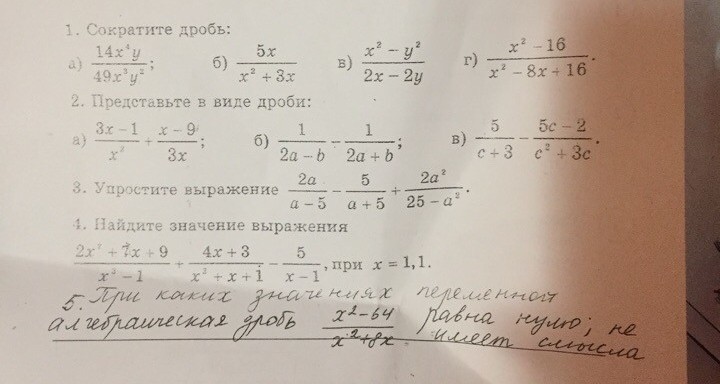 1. Сократите дробь:
а) 14x⁴y / 49x³y² ; б) 5x / x² + 3x в) x² − y² / 2x − 2y г) x² − 16 / x² − 8x + 16 .
2. Представьте в виде дроби:
а) 3x − 1 / x² + x − 9 / 3x ; б) 1 / 2a − b − 1 / 2a + b ; в) 5 / c + 3 − 5c − 2 / c² + 3c .
3. Упростите выражение 2a / a − 5 − 5 / a + 5 + 2a² / 25 − a² .
4. Найдите значение выражения
2x² + 7x + 9 / x³ − 1 + 4x + 3 / x² + x + 1 − 5 / x − 1 , при x = 1,1.
5. При каких значениях переменной
алгебраическая дробь x² − 64 / x² + 8x равна нулю; не
имеет смысла